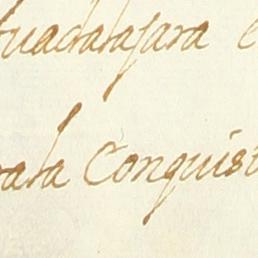 Guadalajara e
para Conquist